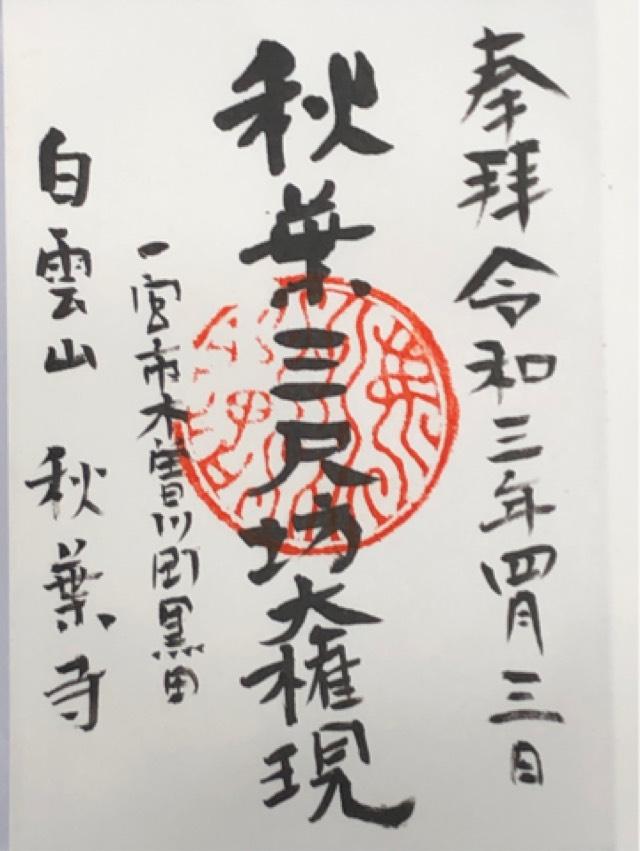 奉拝 令和三年四月三日
秋葉三尺坊大権現
一宮市木曽川町黒田
白雲山 秋葉寺